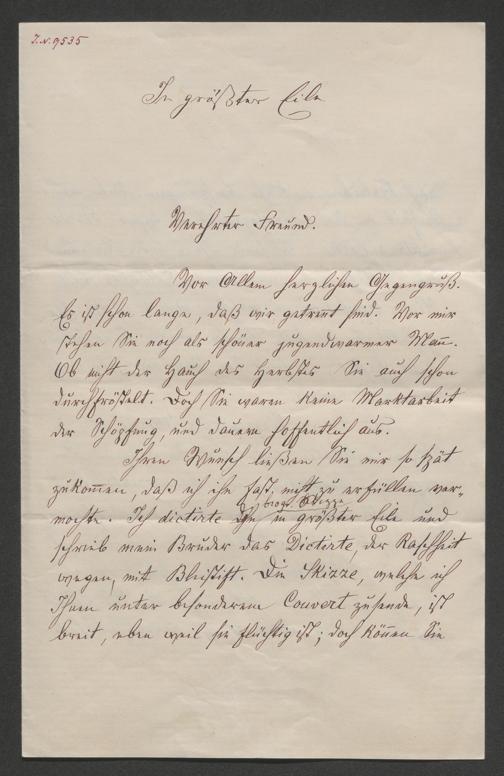 I.N. 9535
In größter Eile
Verehrter Freund.
Vor Allem herzlichen Gegengruß.
Es ist schon lange, daß wir getrennt sind. Vor mir
stehen Sie noch als schöner jugendwarmer Mañ.
Ob nicht der Hauch des Herbstes Sie auch schon
durchfröstelt. Doch Sie waren keine Marktarbeit
der Schöpfung, und dauern hoffentlich aus.
Ihren Wunsch ließen Sie mir so spät
zukom̄en, daß ich ihn fast nicht zu erfüllen ver-
mochte. Ich dictirte die biogr. Skizze in größter Eile und
schrieb mein Bruder das Dictirte, der Raschheit
wegen, mit Bleistift. Die Skizze, welche ich
Ihnen unter besonderem Couvert zusende, ist
breit, eben weil sie flüchtig ist; doch köñen Sie